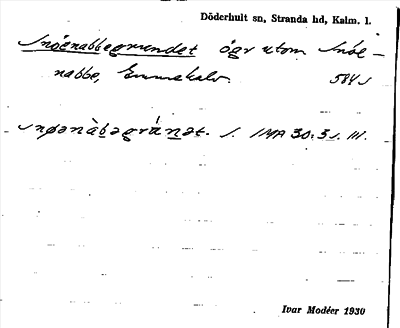 Döderhult sn, Stranda hd, Kalm. l.
Snöenabbegrundet ögr utom Snöe-
nabbe, Emmekalv. 584 S
IMA 30: s. 111.
Ivar Modéer 1930